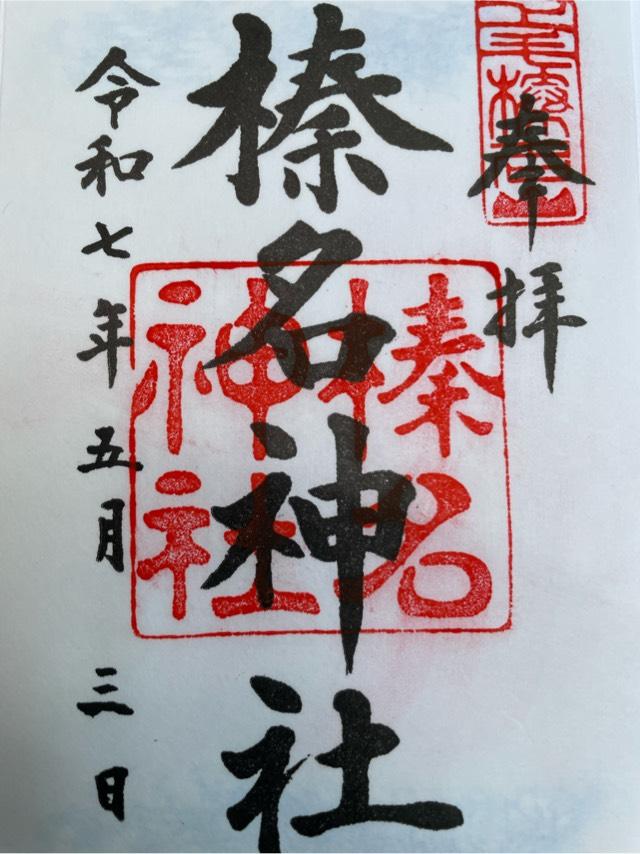 奉拝
榛名神社
令和七年五月三日
榛名
神社